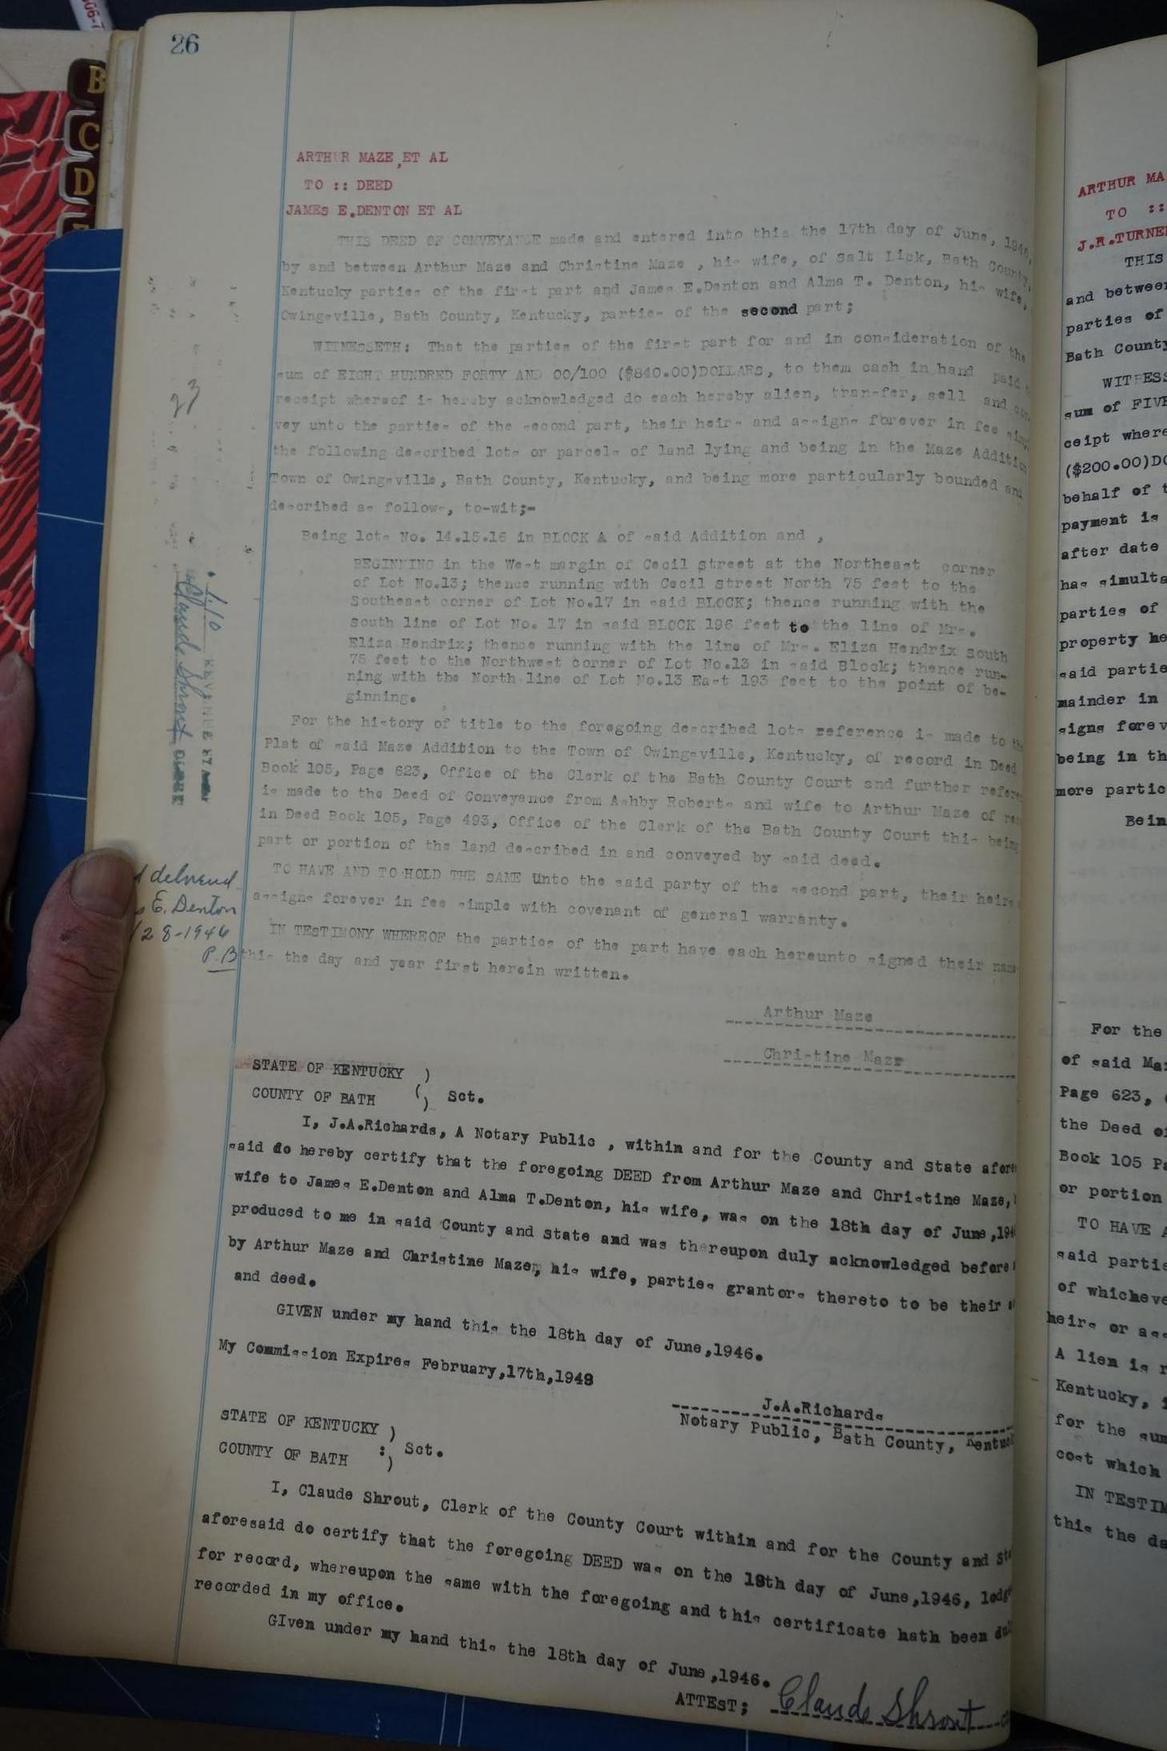 26
B
C
D
ARTHUR MAZE, ET AL
TO :: DEED
JAMES E.DENTON ET AL
THIS DEED OF CONVEYANCE made and entered into this the 17th day of June, 1946,
by and between Arthur Maze and Christine Maze , his wife, of Salt Lick, Bath County,
Kentucky parties of the first part and James E.Denton and Alma T. Denton, his wife,
Owingsville, Bath County, Kentucky, parties of the second part;
WITNESSETH: That the parties of the first part for and in consideration of the
sum of EIGHT HUNDRED FORTY AND 00/100 ($840.00)DOLLARS, to them cash in hand paid
receipt whereof is hereby acknowledged do each hereby alien, transfer, sell and con
vey unto the parties of the second part, their heirs and assigns forever in fee simp
the following described lots or parcels of land lying and being in the Maze Addition
Town of Owingsville, Bath County, Kentucky, and being more particularly bounded and
described as follows, to-wit;-
Being lots No. 14.15.16 in BLOCK A of said Addition and ,
BEGINNING in the West margin of Cecil street at the Northeast corner
of Lot No.13; thence running with Cecil street North 75 feet to the
Southeast corner of Lot No.17 in said BLOCK; thence running with the
south line of Lot No. 17 in said BLOCK 196 feet to the line of Mrs.
Eliza Hendrix; thence running with the line of Mrs. Eliza Hendrix South
75 feet to the Northwest corner of Lot No.13 in said Block; thence run-
ning with the North line of Lot No.13 East 193 feet to the point of be-
ginning.
For the history of title to the foregoing described lots reference is made to th
Plat of said Maze Addition to the Town of Owingsville, Kentucky, of record in Deed
Book 105, Page 623, Office of the Clerk of the Bath County Court and further refere
is made to the Deed of Conveyance from Ashby Roberts and wife to Arthur Maze of rec
in Deed Book 105, Page 493, Office of the Clerk of the Bath County Court this being
part or portion of the land described in and conveyed by said deed.
TO HAVE AND TO HOLD THE SAME Unto the said party of the second part, their heirs
assigns forever in fee simple with covenant of general warranty.
IN TESTIMONY WHEREOF the parties of the part have each hereunto signed their name
this the day and year first herein written.
Arthur Maze
Christine Maze
STATE OF KENTUCKY )
COUNTY OF BATH () Sct.
I, J.A.Richards, A Notary Public , within and for the County and State afore
said do hereby certify that the foregoing DEED from Arthur Maze and Christine Maze,
wife to James E.Denton and Alma T.Denton, his wife, was on the 18th day of June,194
produced to me in said County and State and was thereupon duly acknowledged before
by Arthur Maze and Christine Maze, his wife, parties grantors thereto to be their
and deed.
GIVEN under my hand this the 18th day of June,1946.
My Commission Expires February,17th,1948
J.A.Richards
Notary Public, Bath County, Kentuc
STATE OF KENTUCKY )
COUNTY OF BATH :) Sct.
I, Claude Shrout, Clerk of the County Court within and for the County and St
aforesaid do certify that the foregoing DEED was on the 18th day of June,1946, lodg
for record, whereupon the same with the foregoing and this certificate hath been du
recorded in my office.
GIven under my hand this the 18th day of June,1946.
ATTEST; Claude Shrout
1.10
Claude Shrout CLERK
delivered
E. Denton
28-1946
P.B
ARTHUR MA
TO ::
J.R.TURNE
THIS
and between
parties of
Bath County
WITNESS
sum of FIVE
ceipt where
($200.00)DO
behalf of t
payment is
after date
has simulta
parties of
property he
said partie
mainder in
signs forev
being in th
more partic
Bein
For the
of said Ma
Page 623,
the Deed o
Book 105 Pa
or portion
TO HAVE A
said partie
of whicheve
heirs or ass
A lien is r
Kentucky,
for the sum
cost which
IN TESTIM
this the da